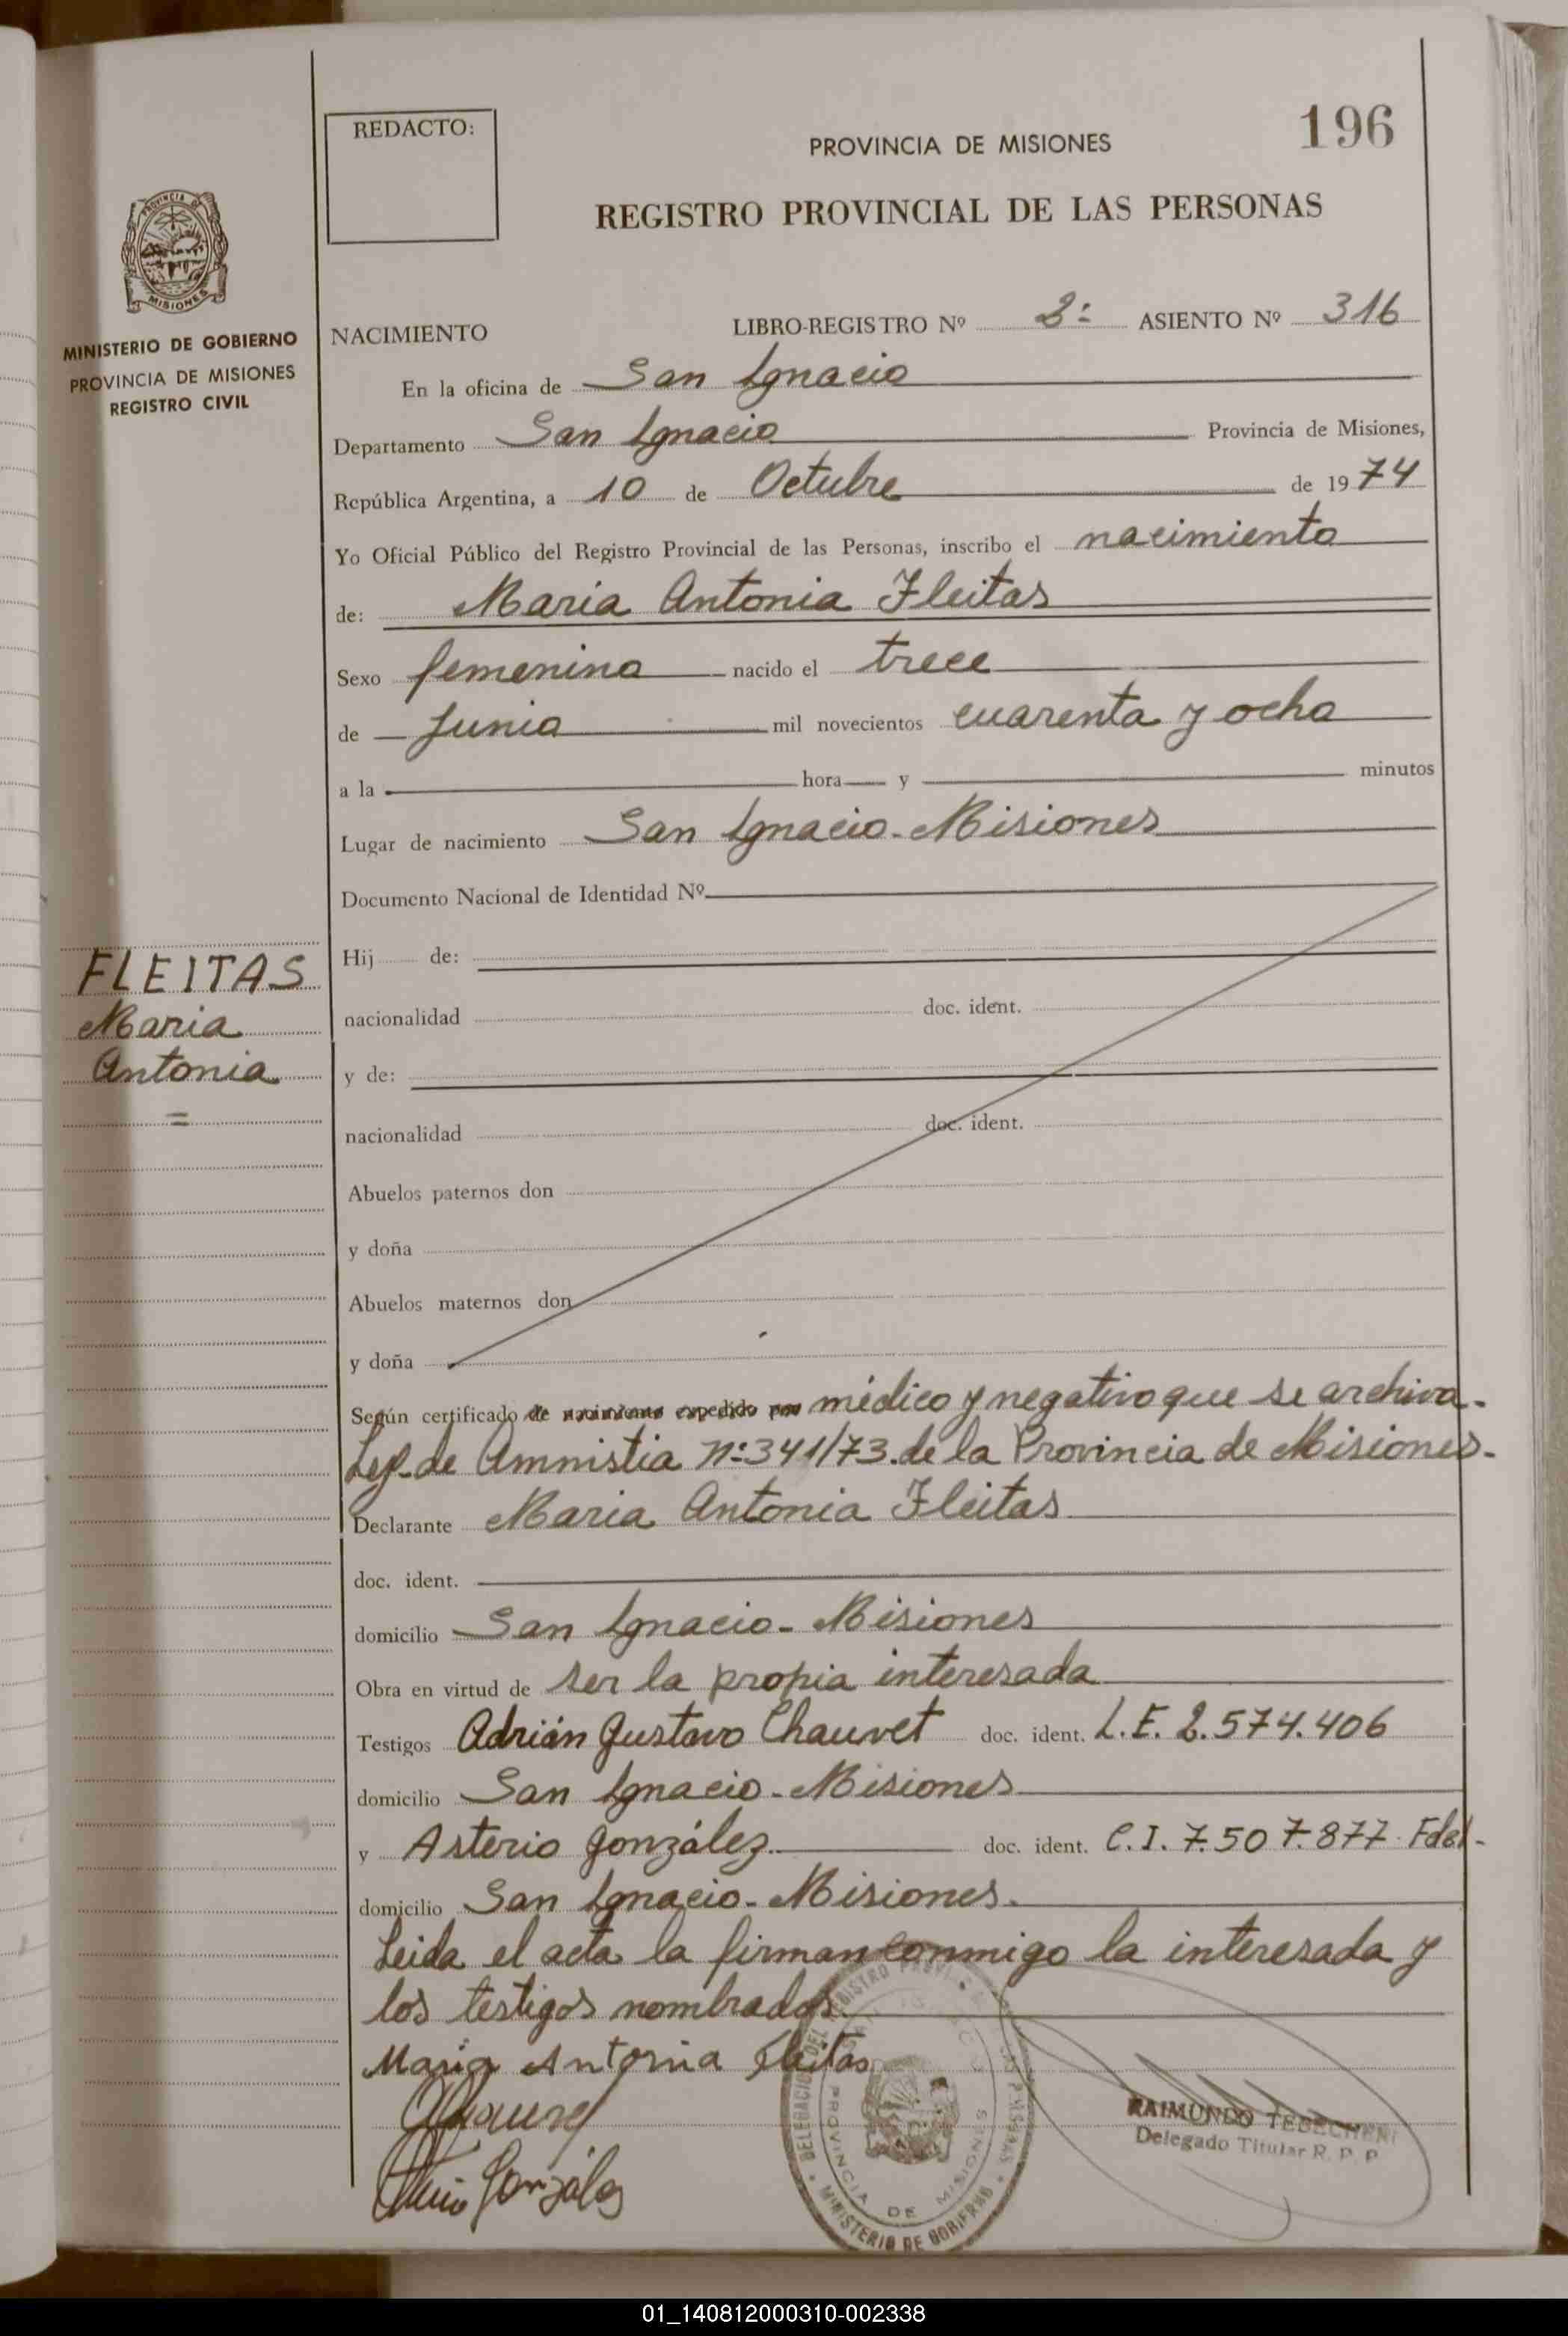 196
REDACTO:
PROVINCIA DE MISIONES
REGISTRO PROVINCIAL DE LAS PERSONAS
PROVINCIA DE
MISIONES
MINISTERIO DE GOBIERNO
PROVINCIA DE MISIONES
REGISTRO CIVIL
NACIMIENTO LIBRO-REGISTRO Nº 2: ASIENTO Nº 316
En la oficina de San Ignacio
Departamento San Ignacio Provincia de Misiones,
República Argentina, a 10 de Octubre de 1974
Yo Oficial Público del Registro Provincial de las Personas, inscribo el nacimiento
de: Maria Antonia Fleitas
Sexo femenino nacido el trece
de Junio mil novecientos cuarenta y ocho
a la hora y minutos
Lugar de nacimiento San Ignacio - Misiones
Documento Nacional de Identidad Nº
FLEITAS
Maria
Antonia
=
Hij de:
nacionalidad doc. ident.
y de:
nacionalidad doc. ident.
Abuelos paternos don
y doña
Abuelos maternos don
y doña
Según certificado de nacimiento expedido por médico y negativo que se archiva.
Ley de Amnistia n:341/73. de la Provincia de Misiones.
Declarante Maria Antonia Fleitas
doc. ident.
domicilio San Ignacio - Misiones
Obra en virtud de ser la propia interesada
Testigos Adrián Gustavo Chauvet doc. ident. L.E. 2.574.406
domicilio San Ignacio - Misiones
y Asterio González doc. ident. C.I. 7.507.877 Fdel-
domicilio San Ignacio - Misiones.
Leida el acta la firman conmigo la interesada y
los testigos nombrados
Maria Antonia Fleitas
González
PROVINCIA DE MISIONES
MINISTERIO DE GOBIERNO
RAIMUNDO TEBECHERI
Delegado Titular R. P. P.
01_140812000310-002338